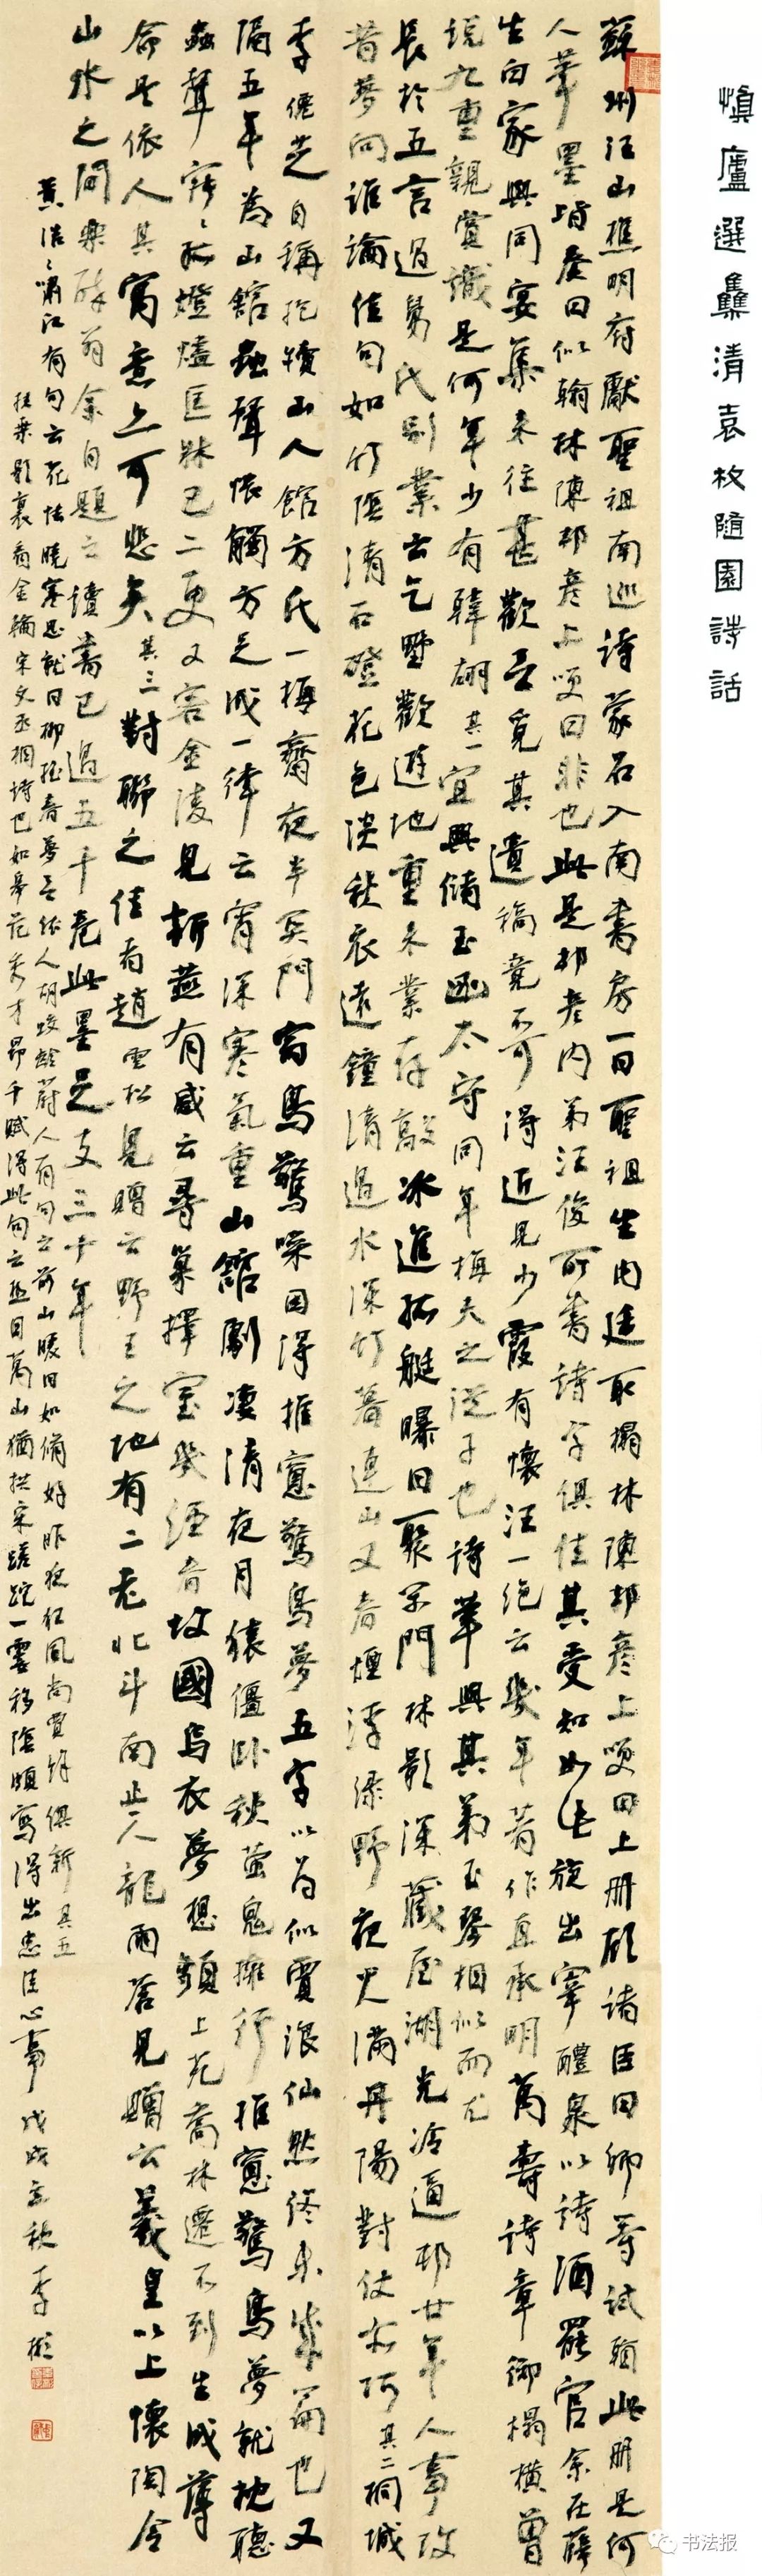 慎廬選集清袁枚隨園詩話
蘇州汪山樵明府獻聖祖南巡詩蒙召入南書房一日聖祖坐內廷取搨林陳邦彥上哭曰上冊顧諸臣曰卿等試猜此冊是何
人筆墨皆奏曰似翰林陳邦彥上哭曰非也此是邦彥內弟汪俊所書詩字俱佳其受知如此旋出宰醴泉以詩酒罷官余在薛
生白家與同宴集來往甚歡云覓其遺稿竟不可得近見少霞有懷汪一絕云幾年著作直承明萬壽詩章御榻橫曾
說九重親賞識是何年少有韓翃其一宜興儲玉函太守同年梅夫之從子也詩筆與其弟玉琴相似而尤
長於五言過舅氏別業云乞墅歡遊地重來業存敲冰進孤艇曝日聚閑門林影深藏屋湖光冷逼邨廿年人事改
昔夢向誰論佳句如竹陰清石磴花色淡秋衣遠鐘清過水深竹暮連山又春煙浮綠野夜火滿丹陽對仗亦巧其二桐城
李僊芝自稱抱犢山人館方氏一梅齋夜半買門宿鳥驚噪因得推窗驚鳥夢五字以為似賈浪仙然終未成篇也又
隔五年為山館蟲聲悵觸方足成一律云宵深寒氣重山館劇淒清夜月猿僵臥秋螢鬼擁行推窗驚鳥夢就枕聽
蟲聲寂寂孤燈燼匡牀已二更又客金陵見新燕有感云尋巢擇室幾經看故國烏衣夢想頻上苑喬林遷不到生成薄
命是依人其寓意亦可悲矣其三對聯之佳者趙雲松見贈云野王之地有二老北斗南此一人龍雨蒼見贈云羲皇以上懷陶令
山水之間樂醉翁余自題云讀書已過五千卷此墨足支三十年
黃浩浩嘯江有句云花怯曉寒思就日柳拖春夢云依人胡蛟齡蔚人有句云前山暖日如俯好昨夜狂風尚賈餘俱新其五
扶桑影裏看金輪宋文丞相詩也如皋范秀才昂千賦得此句云亟目萬山猶拱宋蹉跎一雲移陰頗寫得出忠臣心事 戊戌立秋 李
书法报